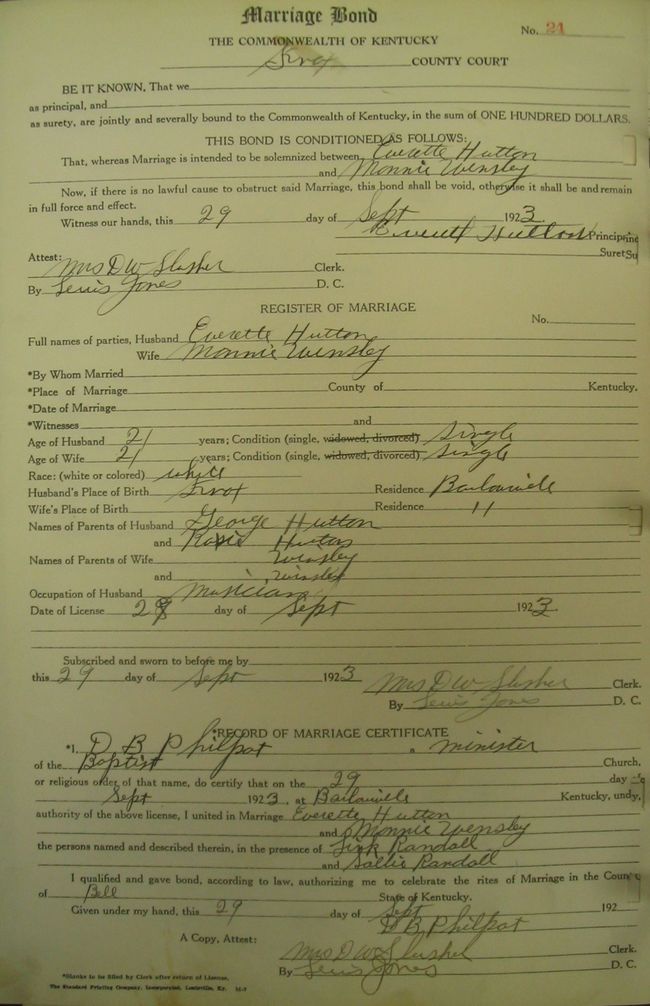 Marriage Bond
No. 21
THE COMMONWEALTH OF KENTUCKY
Knox COUNTY COURT
BE IT KNOWN, That we
as principal, and
as surety, are jointly and severally bound to the Commonwealth of Kentucky, in the sum of ONE HUNDRED DOLLARS.
THIS BOND IS CONDITIONED AS FOLLOWS:
That, whereas Marriage is intended to be solemnized between Everette Hutton
and Monnie Wensley
Now, if there is no lawful cause to obstruct said Marriage, this bond shall be void, otherwise it shall be and remain
in full force and effect.
Witness our hands, this 29 day of Sept 1923.
Everett Hutton Principal
Attest: Suret
Mrs D W Slusher Clerk.
By Lewis Jones D. C.
REGISTER OF MARRIAGE
No.
Full names of parties, Husband Everette Hutton
Wife Monnie Wensley
*By Whom Married
*Place of Marriage County of Kentucky.
*Date of Marriage
*Witnesses and
Age of Husband 21 years; Condition (single, widowed, divorced) Single
Age of Wife 21 years; Condition (single, widowed, divorced) Single
Race: (white or colored) white
Husband's Place of Birth Knox Residence Barbourville
Wife's Place of Birth Residence "
Names of Parents of Husband George Hutton
and Hutton
Names of Parents of Wife Wensley
and Wensley
Occupation of Husband Musician
Date of License 29 day of Sept 1923.
Subscribed and sworn to before me by
this 29 day of Sept 1923 Mrs D W Slusher Clerk.
By Lewis Jones D. C.
*RECORD OF MARRIAGE CERTIFICATE
*I, D B Philpot a minister
of the Baptist Church.
or religious order of that name, do certify that on the 29 day
Sept 1923, at Barbourville Kentucky, und
authority of the above license, I united in Marriage Everette Hutton
and Monnie Wensley
the persons named and described therein, in the presence of Randall
and Sallie Randall
I qualified and gave bond, according to law, authorizing me to celebrate the rites of Marriage in the Coun
of Bell State of Kentucky.
Given under my hand, this 29 day of Sept 192
D B Philpot
A Copy, Attest:
Mrs D W Slusher Clerk.
By Lewis Jones D. C.
*Blanks to be filled by Clerk after return of License.
The Standard Printing Company, Incorporated, Louisville, Ky.